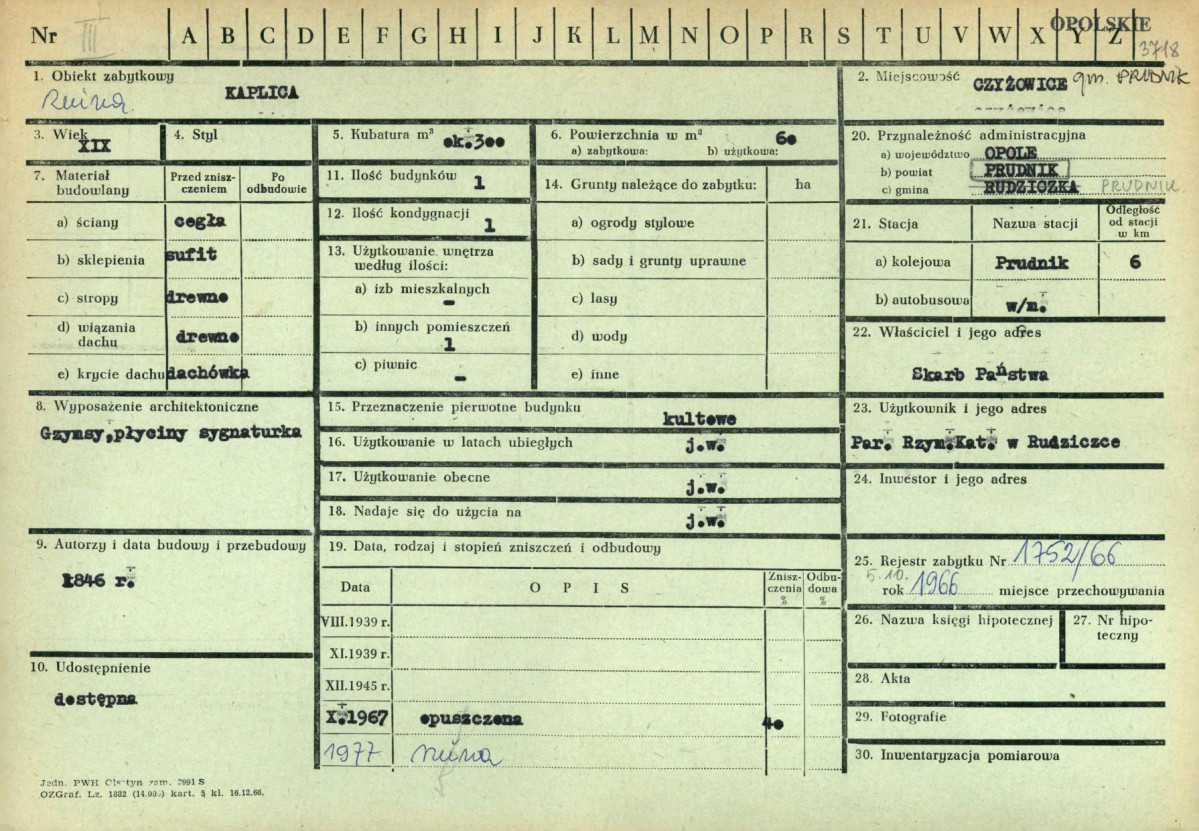 Nr III A B C D E F G H I J K L M N O P R S T U V W X Y Z OPOLSKIE
3718
1. Obiekt zabytkowy
Ruina.
KAPLICA
2. Miejscowość CZYŻOWICE gm. PRUDNIK
3. Wiek XIX
4. Styl
5. Kubatura m³ ok.300
6. Powierzchnia w m² 60
a) zabytkowa: b) użytkowa:
20. Przynależność administracyjna
a) województwo OPOLE
b) powiat PRUDNIK
c) gmina RUDZICZKA PRUDNIK
7. Materiał budowlany
Przed znisz-
czeniem
Po
odbudowie
a) ściany cegła
b) sklepienia sufit
c) stropy drewno
d) wiązania
dachu drewno
e) krycie dachu dachówka
11. Ilość budynków 1
12. Ilość kondygnacji 1
13. Użytkowanie wnętrza
według ilości:
a) izb mieszkalnych -
b) innych pomieszczeń 1
c) piwnic -
14. Grunty należące do zabytku: ha
a) ogrody stylowe
b) sady i grunty uprawne
c) lasy
d) wody
e) inne
21. Stacja Nazwa stacji
Odległość
od stacji
w km
a) kolejowa Prudnik 6
b) autobusowa w/m.
22. Właściciel i jego adres
Skarb Państwa
8. Wyposażenie architektoniczne
Gzymsy,płyciny sygnaturka
15. Przeznaczenie pierwotne budynku kultowe
16. Użytkowanie w latach ubiegłych j.w.
17. Użytkowanie obecne j.w.
18. Nadaje się do użycia na j.w.
23. Użytkownik i jego adres
Par. Rzym.Kat. w Rudziczce
24. Inwestor i jego adres
9. Autorzy i data budowy i przebudowy
1846 r.
10. Udostępnienie
dostępna
19. Data, rodzaj i stopień zniszczeń i odbudowy
Data O P I S
Znisz-
czenia
%
Odbu-
dowa
%
VIII.1939 r.
XI.1939 r.
XII.1945 r.
X.1967 opuszczona 40
1977 ruina
25. Rejestr zabytku Nr 1752/66
5.10.
rok 1966 miejsce przechowywania
26. Nazwa księgi hipotecznej
27. Nr hipo-
teczny
28. Akta
29. Fotografie
30. Inwentaryzacja pomiarowa
Jedn. PWH Olsztyn zam. 2991 S
OZGraf. Lz. 1882 (14.000) kart. 5 kl. 16.12.66.